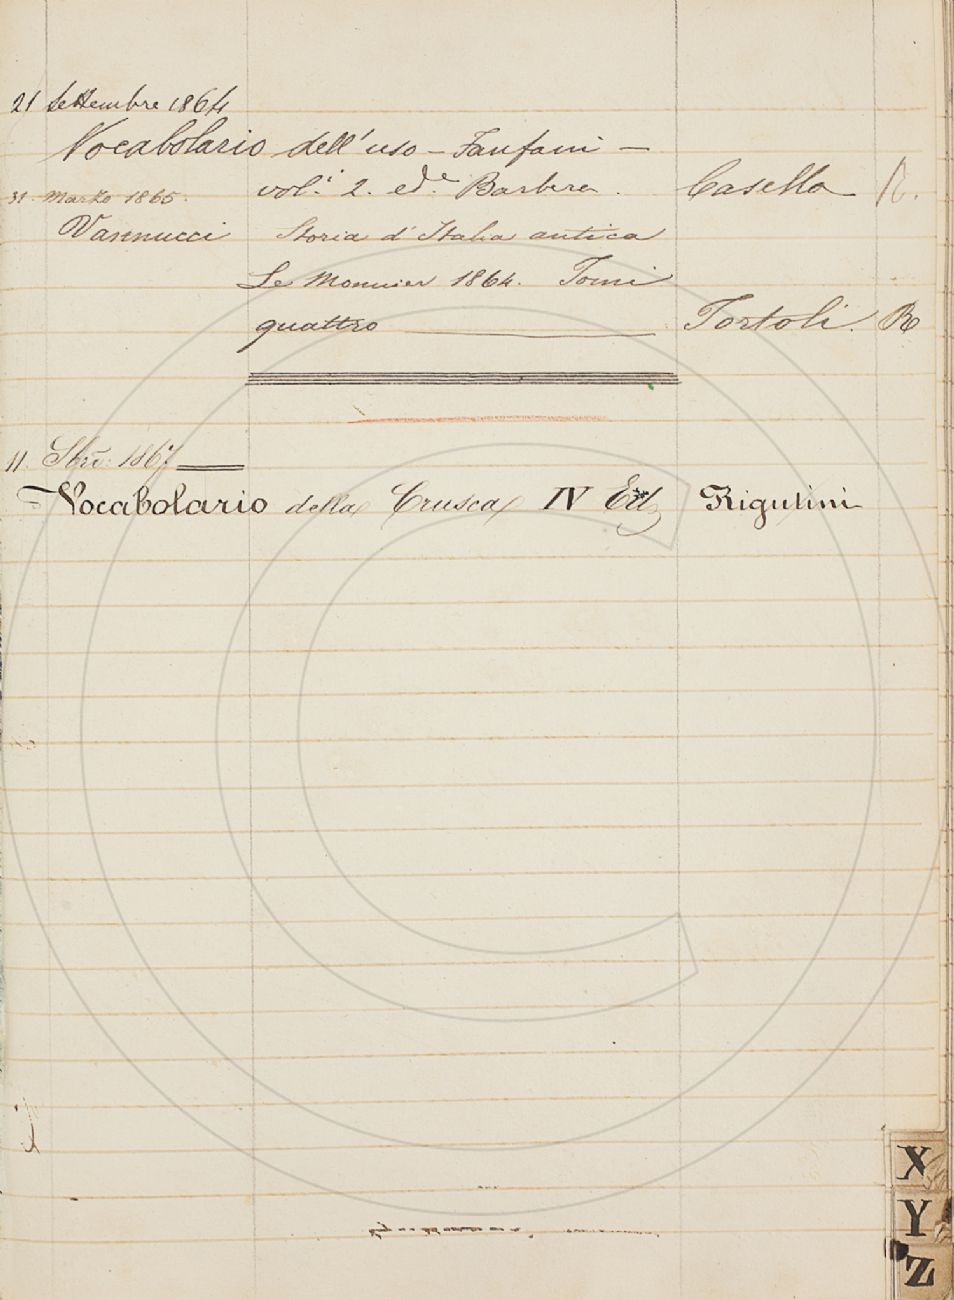 21 Settembre 1864
Vocabolario dell'uso – Fanfani –
vol.i 2. ed.e Barbera. Casella R.
31 Marzo 1865.
Vannucci Storia d'Italia antica
Le Monnier 1864. Tomi
quattro Tortoli. R
11 1867
Vocabolario della Crusca IV Ed Rigutini
X
Y
Z